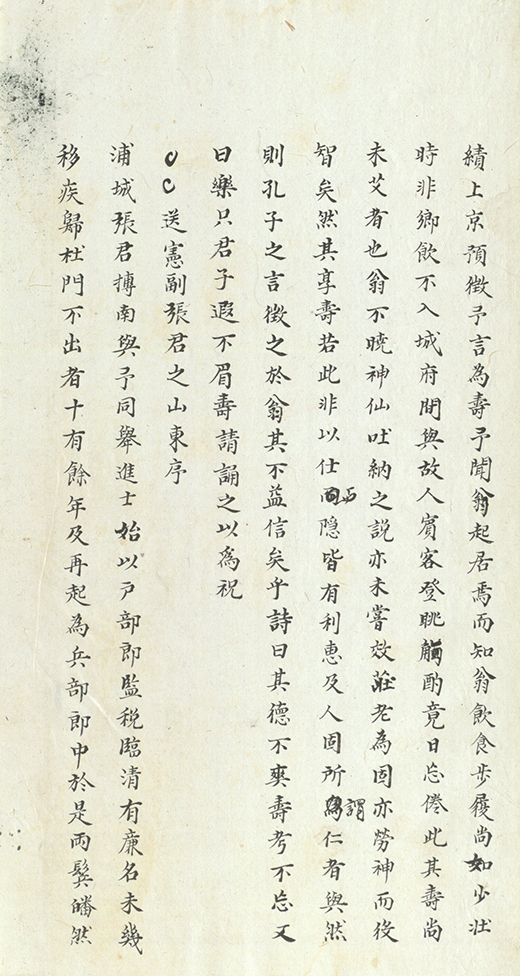 績上京預徵予言為壽予聞翁起居焉而知翁飲食步履尚如少壯
時非鄉飲不入城府閒與故人賓客登眺觴酌竟日忘倦此其壽尚
未艾者也翁不曉神仙吐納之説亦未嘗效莊老為固亦勞神而役
智矣然其享壽若此非以仕而隱皆有利惠及人固所謂仁者與然
則孔子之言徵之於翁其不益信矣乎詩曰其德不爽壽考不忘又
曰樂只君子遐不眉壽請誦之以為祝
送憲副張君之山東序
浦城張君摶南與予同舉進士始以戸部郎監税臨清有廉名未幾
移疾歸杜門不出者十有餘年及再起為兵部郎中於是兩鬓皤然